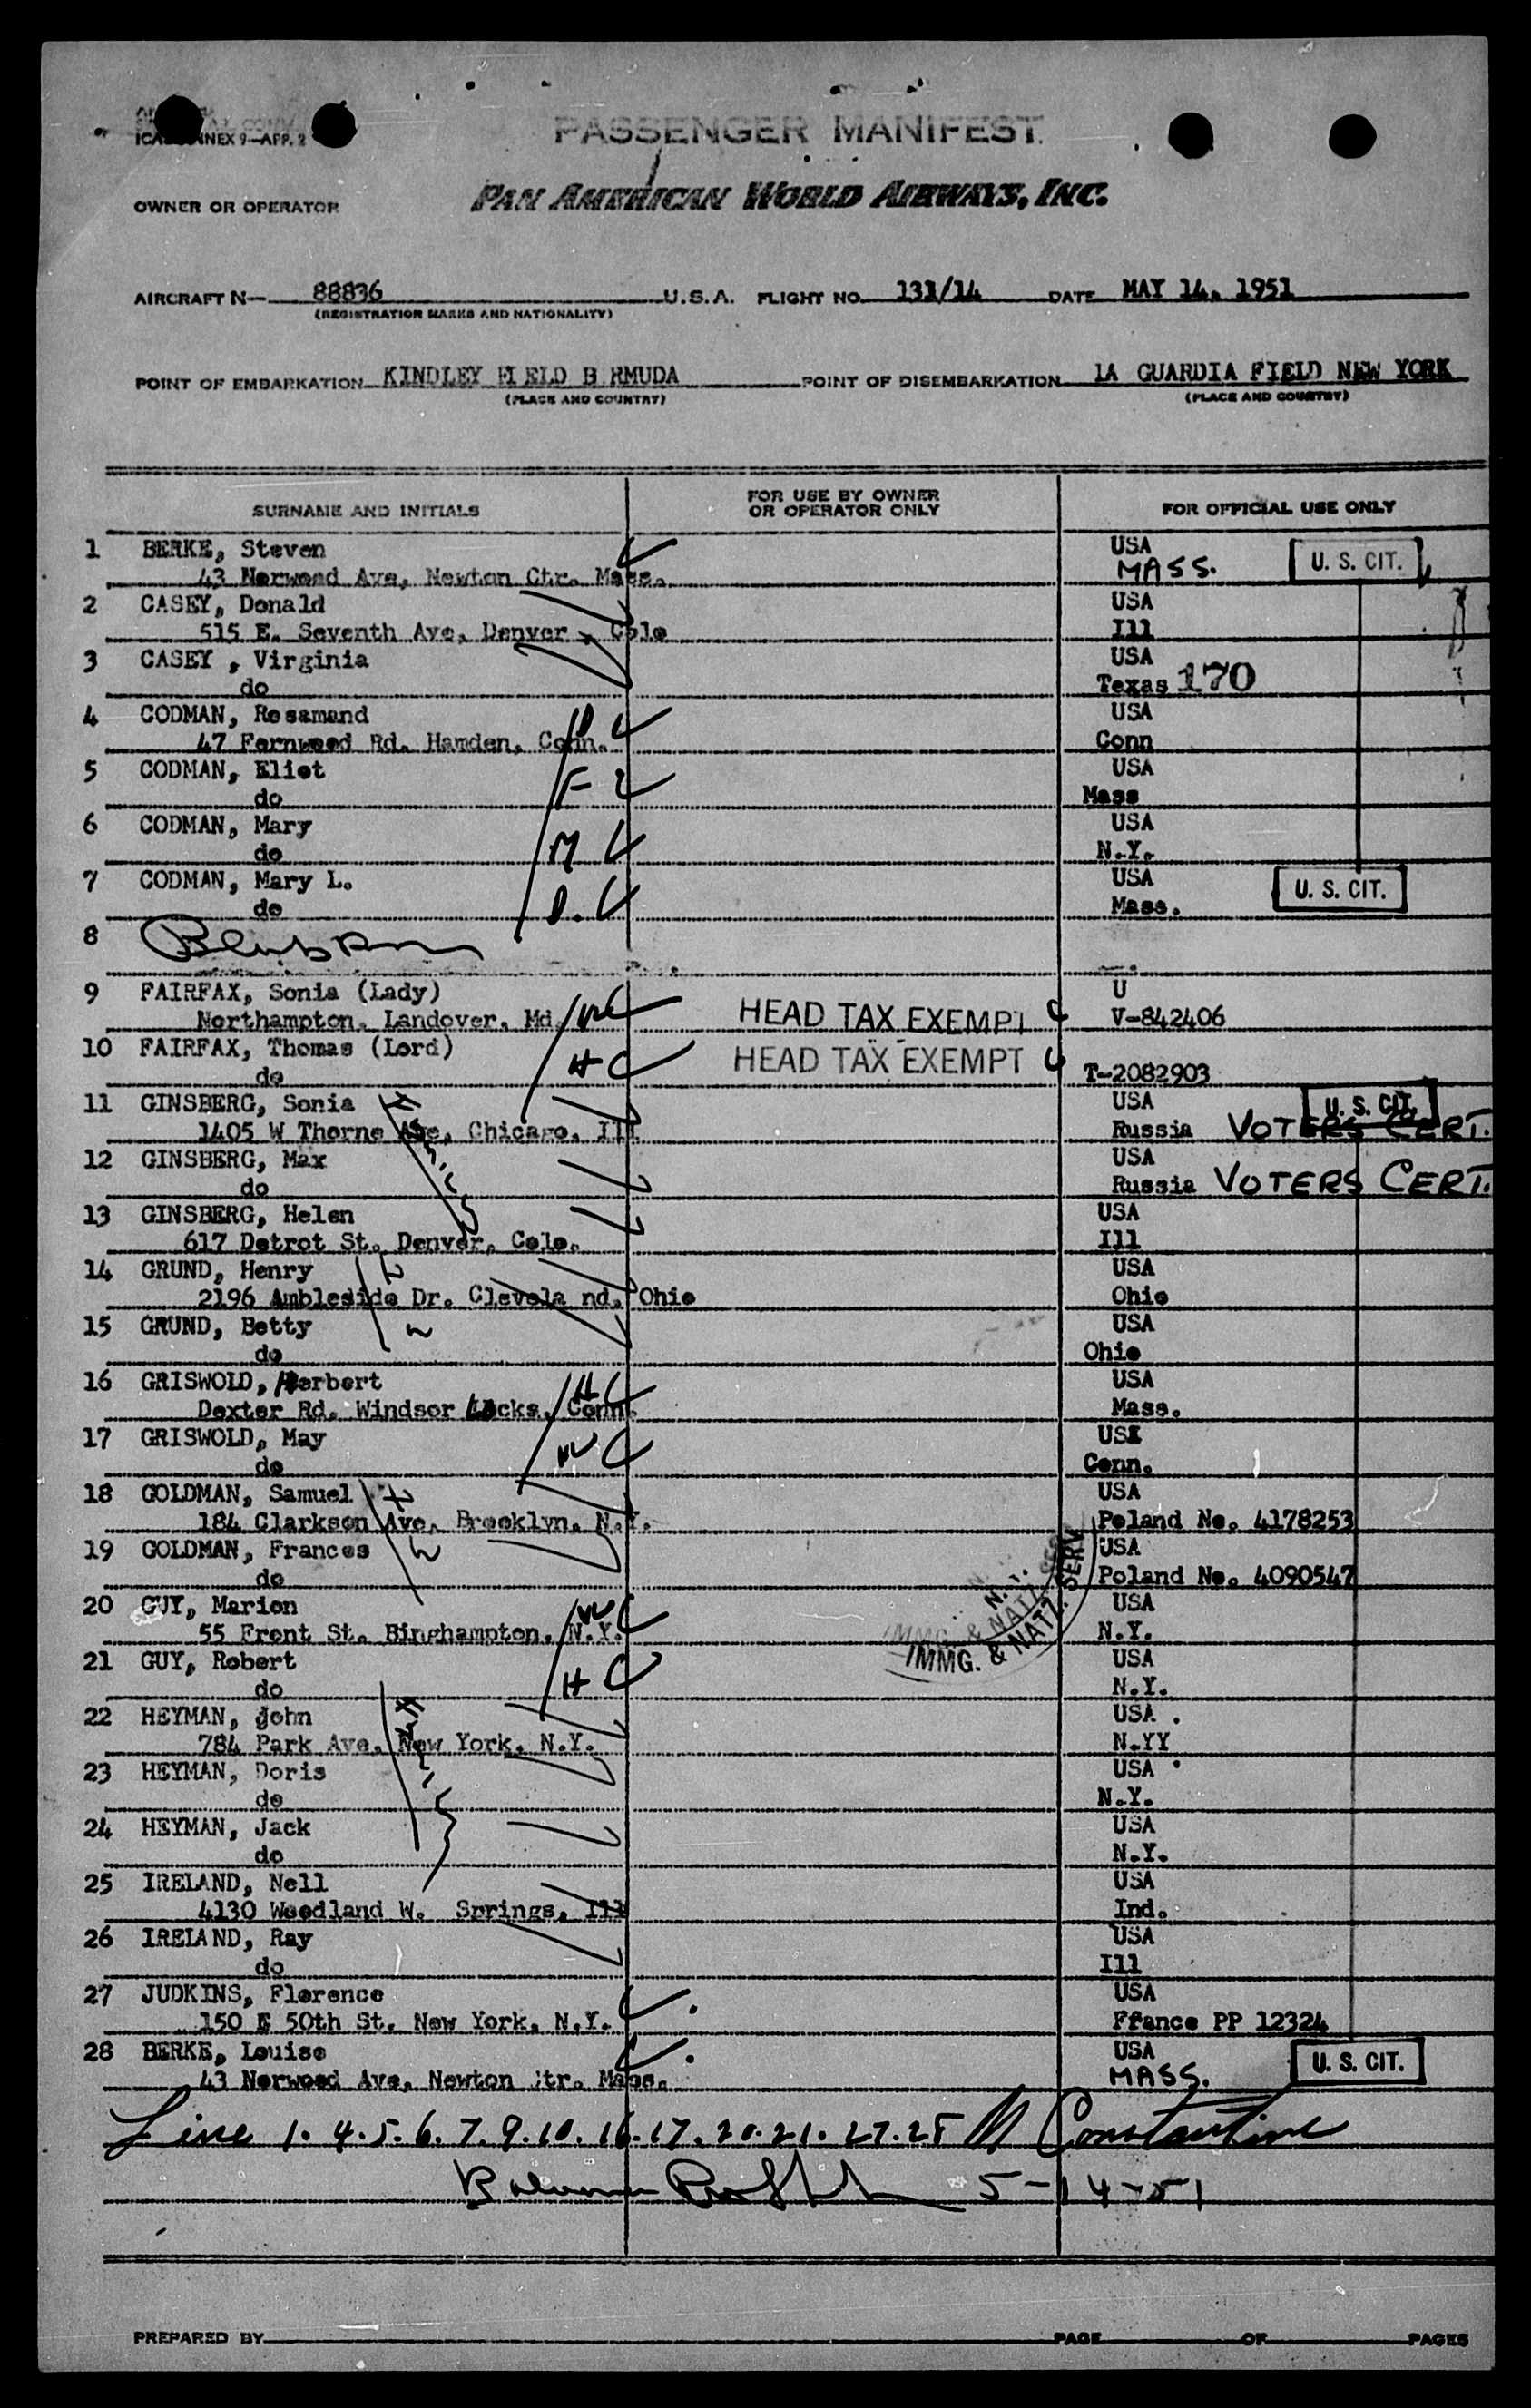 ICA ANNEX 9—APP. 2
PASSENGER MANIFEST.
OWNER OR OPERATOR PAN AMERICAN WORLD AIRWAYS, INC.
AIRCRAFT N— 88836 U.S.A. FLIGHT NO. 131/14 DATE MAY 14. 1951
(REGISTRATION MARKS AND NATIONALITY)
POINT OF EMBARKATION KINDLEY FIELD B RMUDA POINT OF DISEMBARKATION LA GUARDIA FIELD NEW YORK
(PLACE AND COUNTRY) (PLACE AND COUNTRY)
SURNAME AND INITIALS FOR USE BY OWNER OR OPERATOR ONLY FOR OFFICIAL USE ONLY
1 BERKE, Steven USA U. S. CIT.
43 Norwood Ave, Newton Ctr. Mass. MASS.
2 CASEY, Donald USA
515 E. Seventh Ave, Denver, Colo Ill
3 CASEY , Virginia USA
do Texas 170
4 CODMAN, Rosamund D USA
47 Fernwood Rd. Hamden, Conn. Conn
5 CODMAN, Eliot F USA
do Mass
6 CODMAN, Mary M USA
do N.Y.
7 CODMAN, Mary L. D. USA U. S. CIT.
do Mass.
8
9 FAIRFAX, Sonia (Lady) U
Northampton, Landover, Md. W HEAD TAX EXEMPT V-842406
10 FAIRFAX, Thomas (Lord) H HEAD TAX EXEMPT
do T-2082903
11 GINSBERG, Sonia USA U. S. CIT.
1405 W Thorne Ave, Chicago, Ill Russia VOTERS CERT.
12 GINSBERG, Max USA
do Russia VOTERS CERT.
13 GINSBERG, Helen USA
617 Detrot St. Denver, Colo. Ill
14 GRUND, Henry USA
2196 Ambleside Dr. Clevela nd, Ohio Ohio
15 GRUND, Betty USA
do Ohio
16 GRISWOLD, Herbert H USA
Dexter Rd. Windsor Locks, Conn. Mass.
17 GRISWOLD, May W USA
do Conn.
18 GOLDMAN, Samuel H USA
184 Clarkson Ave, Brooklyn, N.Y. Poland No. 4178253
19 GOLDMAN, Frances W USA
do Poland No. 4090547
20 GUY, Marion W USA
55 Front St. Binghampton, N.Y. N.Y.
IMMG. & NATZ. SERV N. Y.
21 GUY, Robert H USA
do N.Y.
22 HEYMAN, John USA .
784 Park Ave. New York, N.Y. N.YY
23 HEYMAN, Doris USA
do N.Y.
24 HEYMAN, Jack USA
do N.Y.
25 IRELAND, Nell USA
4130 Woodland W. Springs, Ill Ind.
26 IRELAND, Ray USA
do Ill
27 JUDKINS, Florence USA
150 E 50th St. New York, N.Y. Ffance PP 12324
28 BERKE, Louise USA U. S. CIT.
43 Norwood Ave, Newton Ctr. Mass. MASS.
Line 1. 4. 5. 6. 7. 9. 10. 16. 17. 20. 21. 27. 28 M Constantine
5-14-51
PREPARED BY PAGE OF PAGES